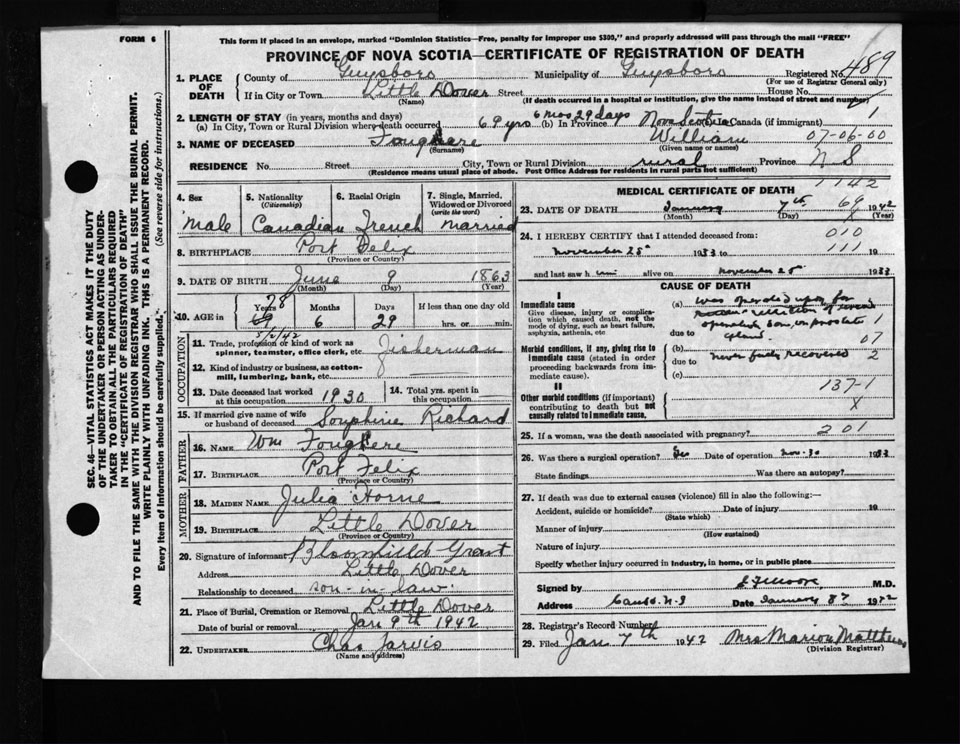 FORM 6
This form if placed in an envelope, marked "Dominion Statistics—Free, penalty for improper use $300," and properly addressed will pass through the mail "FREE"
PROVINCE OF NOVA SCOTIA—CERTIFICATE OF REGISTRATION OF DEATH
1. PLACE OF DEATH County of Guysboro Municipality of Guysboro Registered No. 489
(For use of Registrar General only)
If in City or Town Little Dover Street House No.
(Name) (If death occurred in a hospital or institution, give the name instead of street and number)
2. LENGTH OF STAY (in years, months and days) 6 mos 29 days
(a) In City, Town or Rural Division where death occurred 69 yrs (b) In Province Nova Scotia (c) In Canada (if immigrant) 1
3. NAME OF DECEASED Fougere William 07-06-00
(Surname) (Given name or names)
RESIDENCE No. Street City, Town or Rural Division rural Province N S
(Residence means usual place of abode. Post Office Address for residents in rural parts not sufficient)
4. Sex 5. Nationality (Citizenship) 6. Racial Origin 7. Single, Married, Widowed or Divorced (write the word)
Male Canadian French Married
8. BIRTHPLACE Port Felix
(Province or Country)
9. DATE OF BIRTH June 9 1863
(Month) (Day) (Year)
10. AGE in Years Months Days If less than one day old
78 69 6 29 hrs. or min.
OCCUPATION
11. Trade, profession or kind of work as spinner, teamster, office clerk, etc. Fisherman
12. Kind of industry or business, as cotton-mill, lumbering, bank, etc.
13. Date deceased last worked at this occupation 1930 14. Total yrs. spent in this occupation
15. If married give name of wife or husband of deceased Souphine Richard
FATHER
16. NAME Wm Fougere
17. BIRTHPLACE Port Felix
(Province or Country)
MOTHER
18. MAIDEN NAME Julia Horne
19. BIRTHPLACE Little Dover
(Province or Country)
20. Signature of informant Bloomfield Grant
Address Little Dover
Relationship to deceased son-in-law
21. Place of Burial, Cremation or Removal Little Dover
Date of burial or removal Jan 9th 1942
22. UNDERTAKER Chas Jarvis
(Name and address)
1142
MEDICAL CERTIFICATE OF DEATH
23. DATE OF DEATH January 7th 1942
(Month) (Day) (Year)
24. I HEREBY CERTIFY that I attended deceased from: 010
November 25 1933 to 111 19
and last saw him alive on November 25 1933
CAUSE OF DEATH
I
Immediate cause
Give disease, injury or complication which caused death, not the mode of dying, such as heart failure, asphyxia, asthenia, etc
(a) was operated upon for
due to
Morbid conditions, if any, giving rise to immediate cause (stated in order proceeding backwards from immediate cause).
(b) never fully recovered
07
2
due to
(c)
II
Other morbid conditions (if important) contributing to death but not causally related to immediate cause.
137-1
X
25. If a woman, was the death associated with pregnancy? 201
26. Was there a surgical operation? Yes Date of operation Nov-30 1933
State findings Was there an autopsy?
27. If death was due to external causes (violence) fill in also the following:—
Accident, suicide or homicide? Date of injury 19
(State which)
Manner of injury
(How sustained)
Nature of injury
Specify whether injury occurred in industry, in home, or in public place
Signed by J F Moore M.D.
Address Canso. N.S Date January 8 1942
28. Registrar's Record Number
29. Filed Jan 7th 1942 Mrs Marion Matthews
(Division Registrar)
SEC. 46—VITAL STATISTICS ACT MAKES IT THE DUTY
OF THE UNDERTAKER OR PERSON ACTING AS UNDER-
TAKER TO OBTAIN ALL THE PARTICULARS REQUIRED
IN THE "CERTIFICATE OF REGISTRATION OF DEATH"
AND TO FILE THE SAME WITH THE DIVISION REGISTRAR WHO SHALL ISSUE THE BURIAL PERMIT.
WRITE PLAINLY WITH UNFADING INK. THIS IS A PERMANENT RECORD.
Every item of information should be carefully supplied. (See reverse side for instructions.)